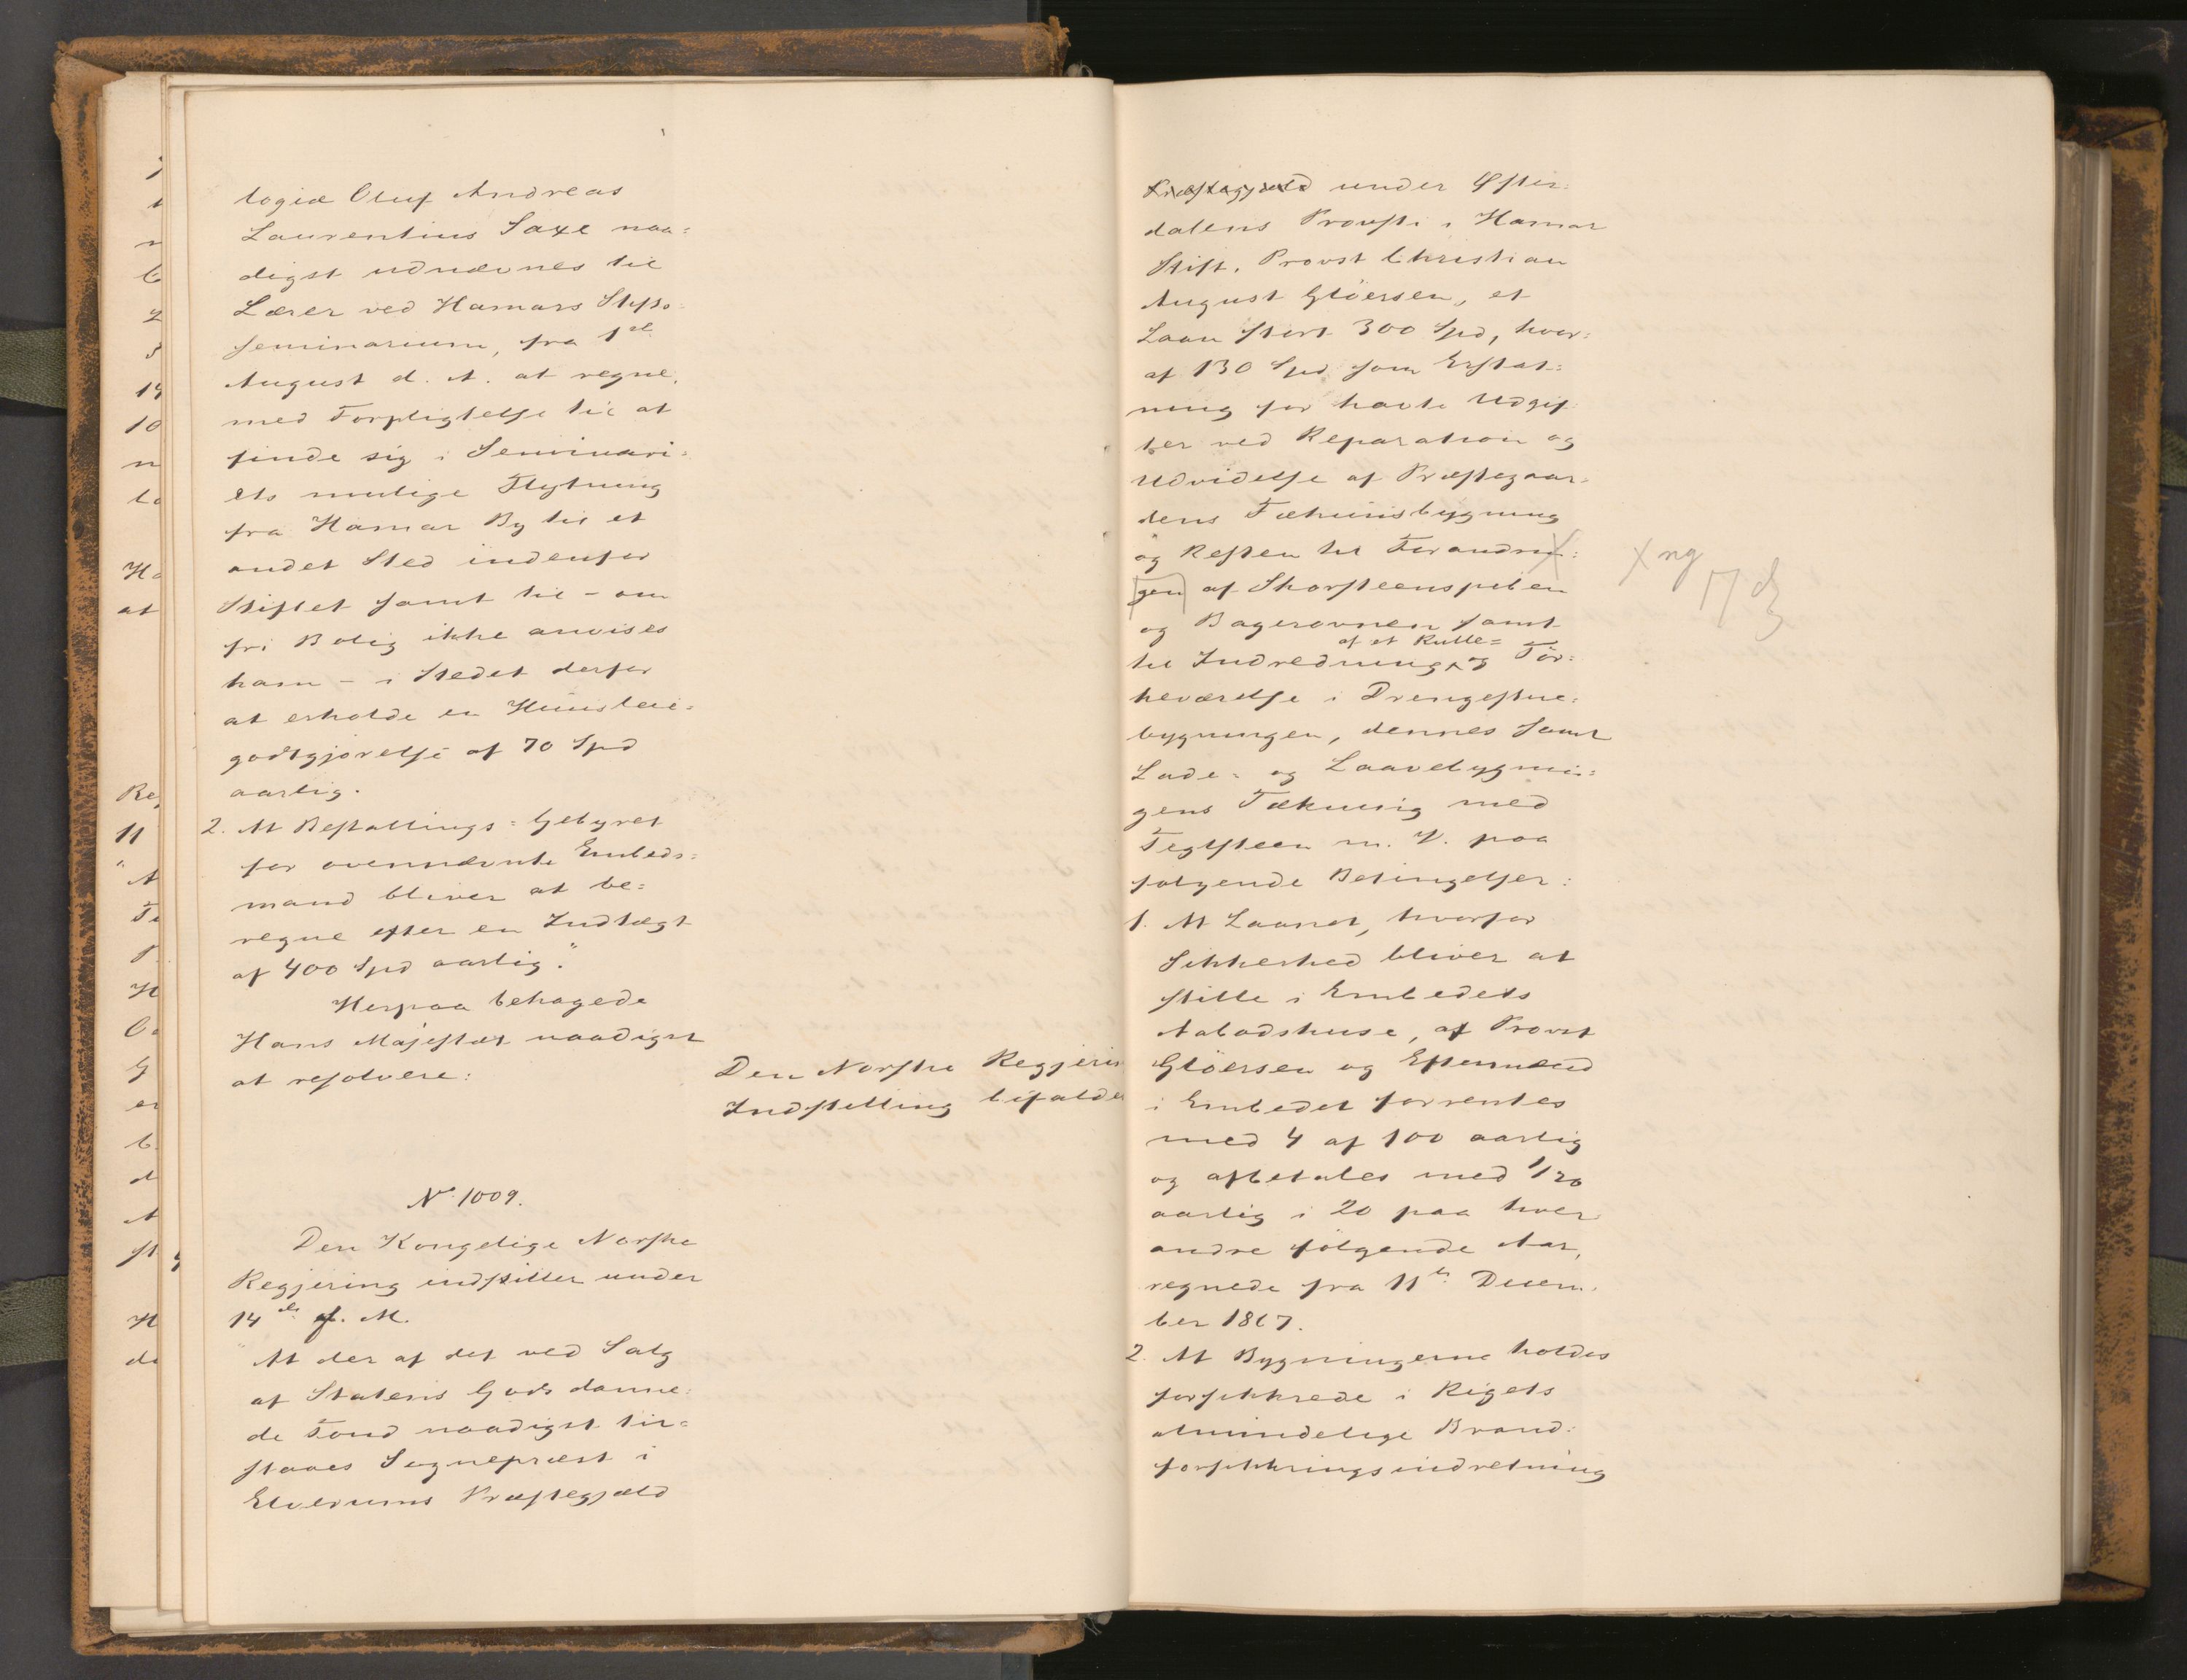 logiæ Oluf Andreas
Laurentius Saxe naa=
digst udnævnes til
Lærer ved Hamars Stifts=
seminarium, fra 1ste
August d. A. at regne,
med Forpligtelse til at
finde sig i Seminari=
ets mulige Flytning
fra Hamar By til et
andet Sted indenfor
Stiftet samt til – om
fri Bolig ikke anvises
ham – i Stedet derfor
at erholde en Huusleie=
godtgjørelse af 70 Spd
aarlig.
2. At Bestallings=Gebyret
for ovennævnte Embeds=
mand bliver at be=
regne efter en Indtægt
af 400 Spd aarlig."
Herpaa behagede
Hans Majestæt naadigst
at resolvere:
Den Norske Regjerin
Indstilling bifalde
No. 1009.
Den Kongelige Norske
Regjering indstiller under
14de f. M.
"At der af det ved Salg
af Statens Gods danne=
de Fond naadigst til=
staaes Sognepræst i
Elverums Præstegjæld
Præstegjæld under Øster=
dalens Provsti i Hamar
Stift, Provst Christian
August Glöersen, et
Laan stort 300 Spd, hvor=
af 130 Spd som Erstat=
ning for havte Udgif=
ter ved Reparation og
Udvidelse af Præstegaar=
dens Fæhuusbygning
og Resten til Forandrin=
gen af Skorsteenspiben
X ng
og Bagerovnen samt
af et Rulle=
til Indredning og Tør=
keværelse i Drengestue=
bygningen, dennes samt
Lade= og Laavebygnin=
gens Tækning med
Teglsteen m. V. paa
følgende Betingelser:
1. At Laanet, hvorfor
Sikkerhed bliver at
stille i Embedets
Aabodshuse, af Provst
Glöersen og Eftermænd
i Embedet forrentes
med 4 af 100 aarlig
og afbetales med 1/20
aarlig i 20 paa hver=
andre følgende Aar,
regnede fra 11te Decem=
ber 1867.
2. At Bygningerne holdes
forsikkrede i Rigets
almindelige Brand=
forsikkringsindretning